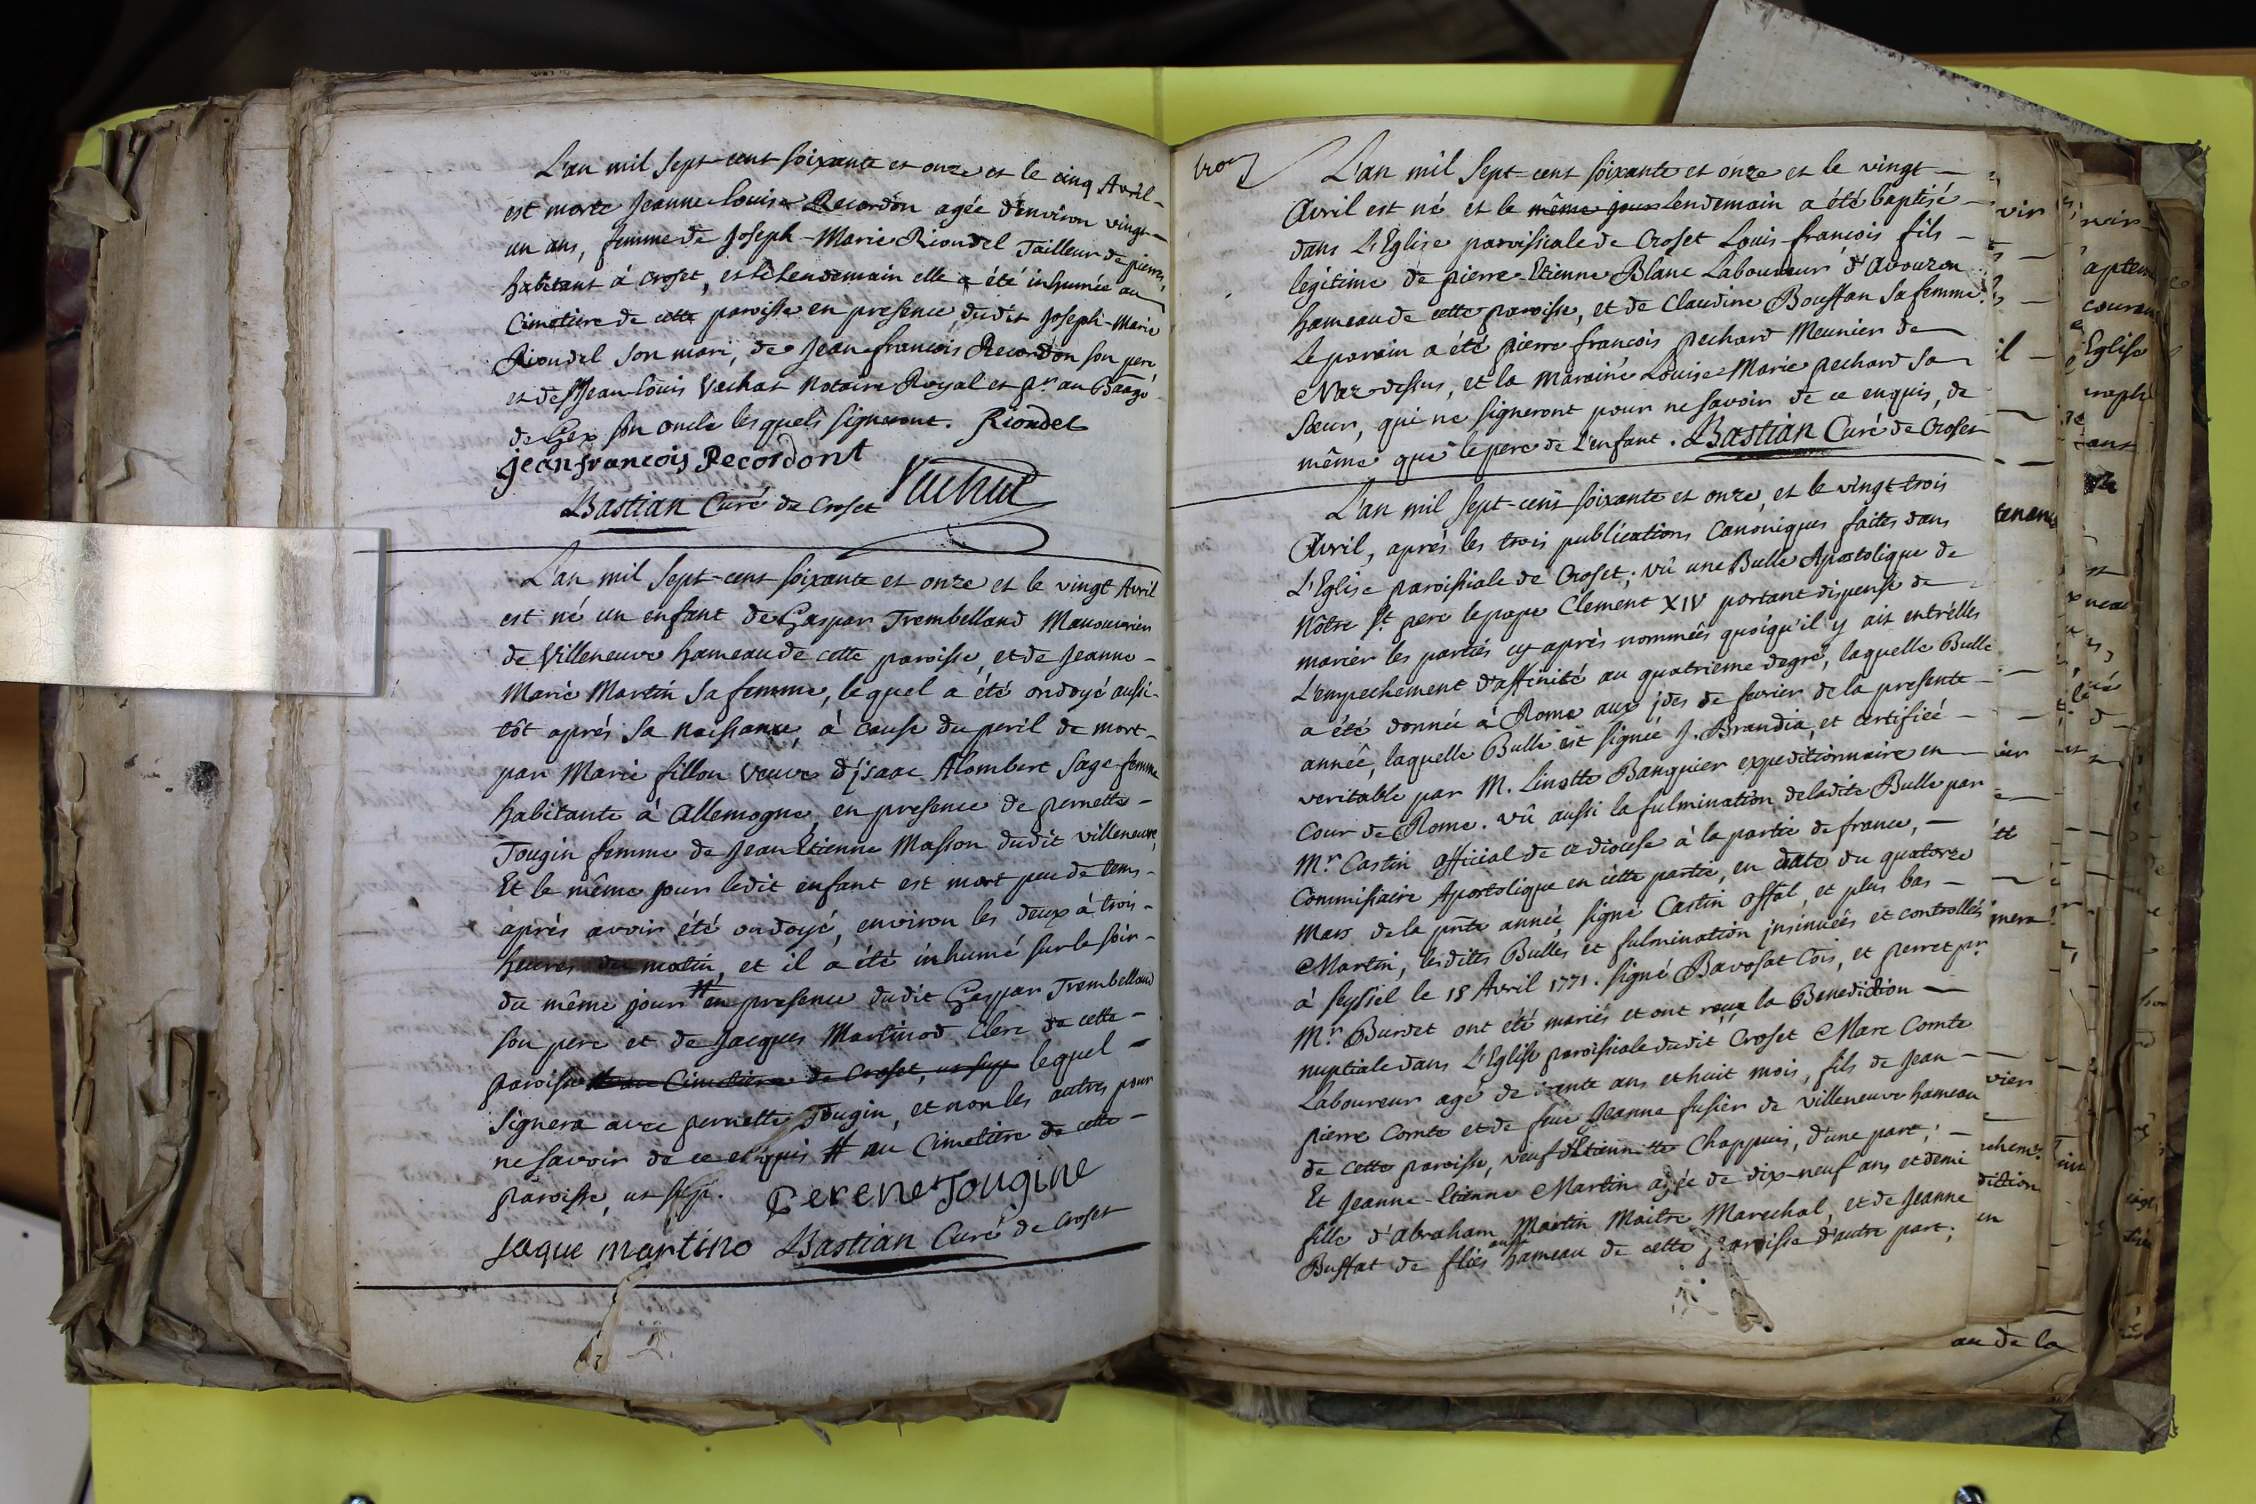 L'an mil sept-cent soixante et onze et le cinq Avril
est morte Jeanne-Louise Recordon agée d'environ vingt
un ans, femme de Joseph-Marie Riondel Tailleur de pierres,
habitant à Croset, et le lendemain elle a été inhumée au
Cimetiere de cette paroisse en presence dudit Joseph-Marie
Riondel son mari, de Jean-francois Recordon son pere,
et de Sr Jean-Louis Vachat Notaire Royal et pr. au Baage
de Gex son oncle lesquels signeront. Riondel
jean francois Recordont
Bastian Curé de Croset Vachat
L'an mil sept-cent soixante et onze et le vingt Avril
est né un enfant de Gaspar Trembelland Manouvrier
de Villeneuve hameau de cette paroisse, et de Jeanne-
Marie Martin sa femme, lequel a été ondoyé aussi-
tôt aprés sa naissance, à cause du peril de mort-
par Marie fillon veuve d'jsaac Alombert sage-femme
habitante à Allemogne, en presence de pernette-
Tougin femme de Jean Etienne Masson dudit villeneuve,
Et le même jour ledit enfant est mort peu de tems-
aprés avoir été ondoyé, environ les deux à trois-
heures du matin, et il a été inhumé sur le soir-
du même jour # en presence dudit Gaspar Trembelland
son pere et de Jacques Martinod Clerc de cette-
paroisse # au Cimetiere de Croset, ut sup lequel
signera avec pernette Tougin, et non les autres pour
ne savoir de ce enquis # au Cimetière de cette-
paroisse, ut sup. Perene Tougine
Jaque martino Bastian Curé de Croset
L'an mil sept-cent soixante et onze et le vingt-
Avril est né et le même jour lendemain a été baptisé-
dans L'Eglise paroissiale de Croset Louis françois fils-
légitime de pierre-Etienne Blanc Laboureur d'Avouzon
hameau de cette paroisse, et de Claudine Bouffan sa femme.
Le parain a été pierre francois pechard Meunier de
Naz-dessus, et la Maraine Louise-Marie pechard sa
soeur, qui ne signeront pour ne savoir de ce enquis, de
même que le pere de L'enfant. Bastian Curé de Croset
L'an mil sept-cent soixante et onze, et le vingt-trois
Avril, aprés les trois publications Canoniques faites dans
L'Eglise paroissiale de Croset; vû une Bulle Apostolique de
Nôtre St pere le pape Clement XIV portant dispense de
marier les partiés cy-aprés nommées quoiqu'il y ait entr'elles
L'empechement d'affinité au quatrieme degré, laquelle Bulle
a été donnée à Rome aux jdes de fevrier de la presente
année, laquelle Bulle est signée J. Brandia, et certifiée-
veritable par M. Linotte Banquier expeditionnaire en
Cour de Rome. vû aussi la fulmination de ladite Bulle par
Mr Castin official de ce diocese à la partie de france,
Commissaire Apostolique en cette partie, en date du quatorze
Mars de la pnte année, signé Castin offal, et plus bas-
Martin, lesdites Bulles et fulmination jnsinuées et controllés
à seyssel le 18 Avril 1771. signé Bavosat Cois, et perret pr.
Mr. Burdet ont été mariés et ont reçu la Benediction
nuptiale dans L'Eglise paroissiale dudit Croset Marc Comte
Laboureur agé de trente ans et huit mois, fils de Jean-
pierre Comte et de feue Jeanne fusier de villeneuve hameau
de cette paroisse, veuf d'Etiennette Chappuis, d'une part;
Et Jeanne-Etienne Martin agée de dix-neuf ans et demi
fille d'Abraham Martin Maitre Marechal, et de Jeanne
Buffat de fliés aussi hameau de cette paroisse d'autre part;
au de la